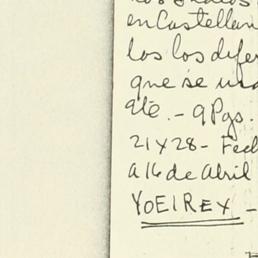 en Castellan
los los difer
que se us
até. - 9 Pgs.
21 x 28 - Fech
a 16 de Abril
YOEIREX -